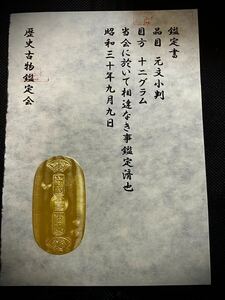 鑑定書
品目　元文小判
目方　十二グラム
当会に於いて相違なき事鑑定済也
昭和三十年九月九日
歴史古物鑑定会